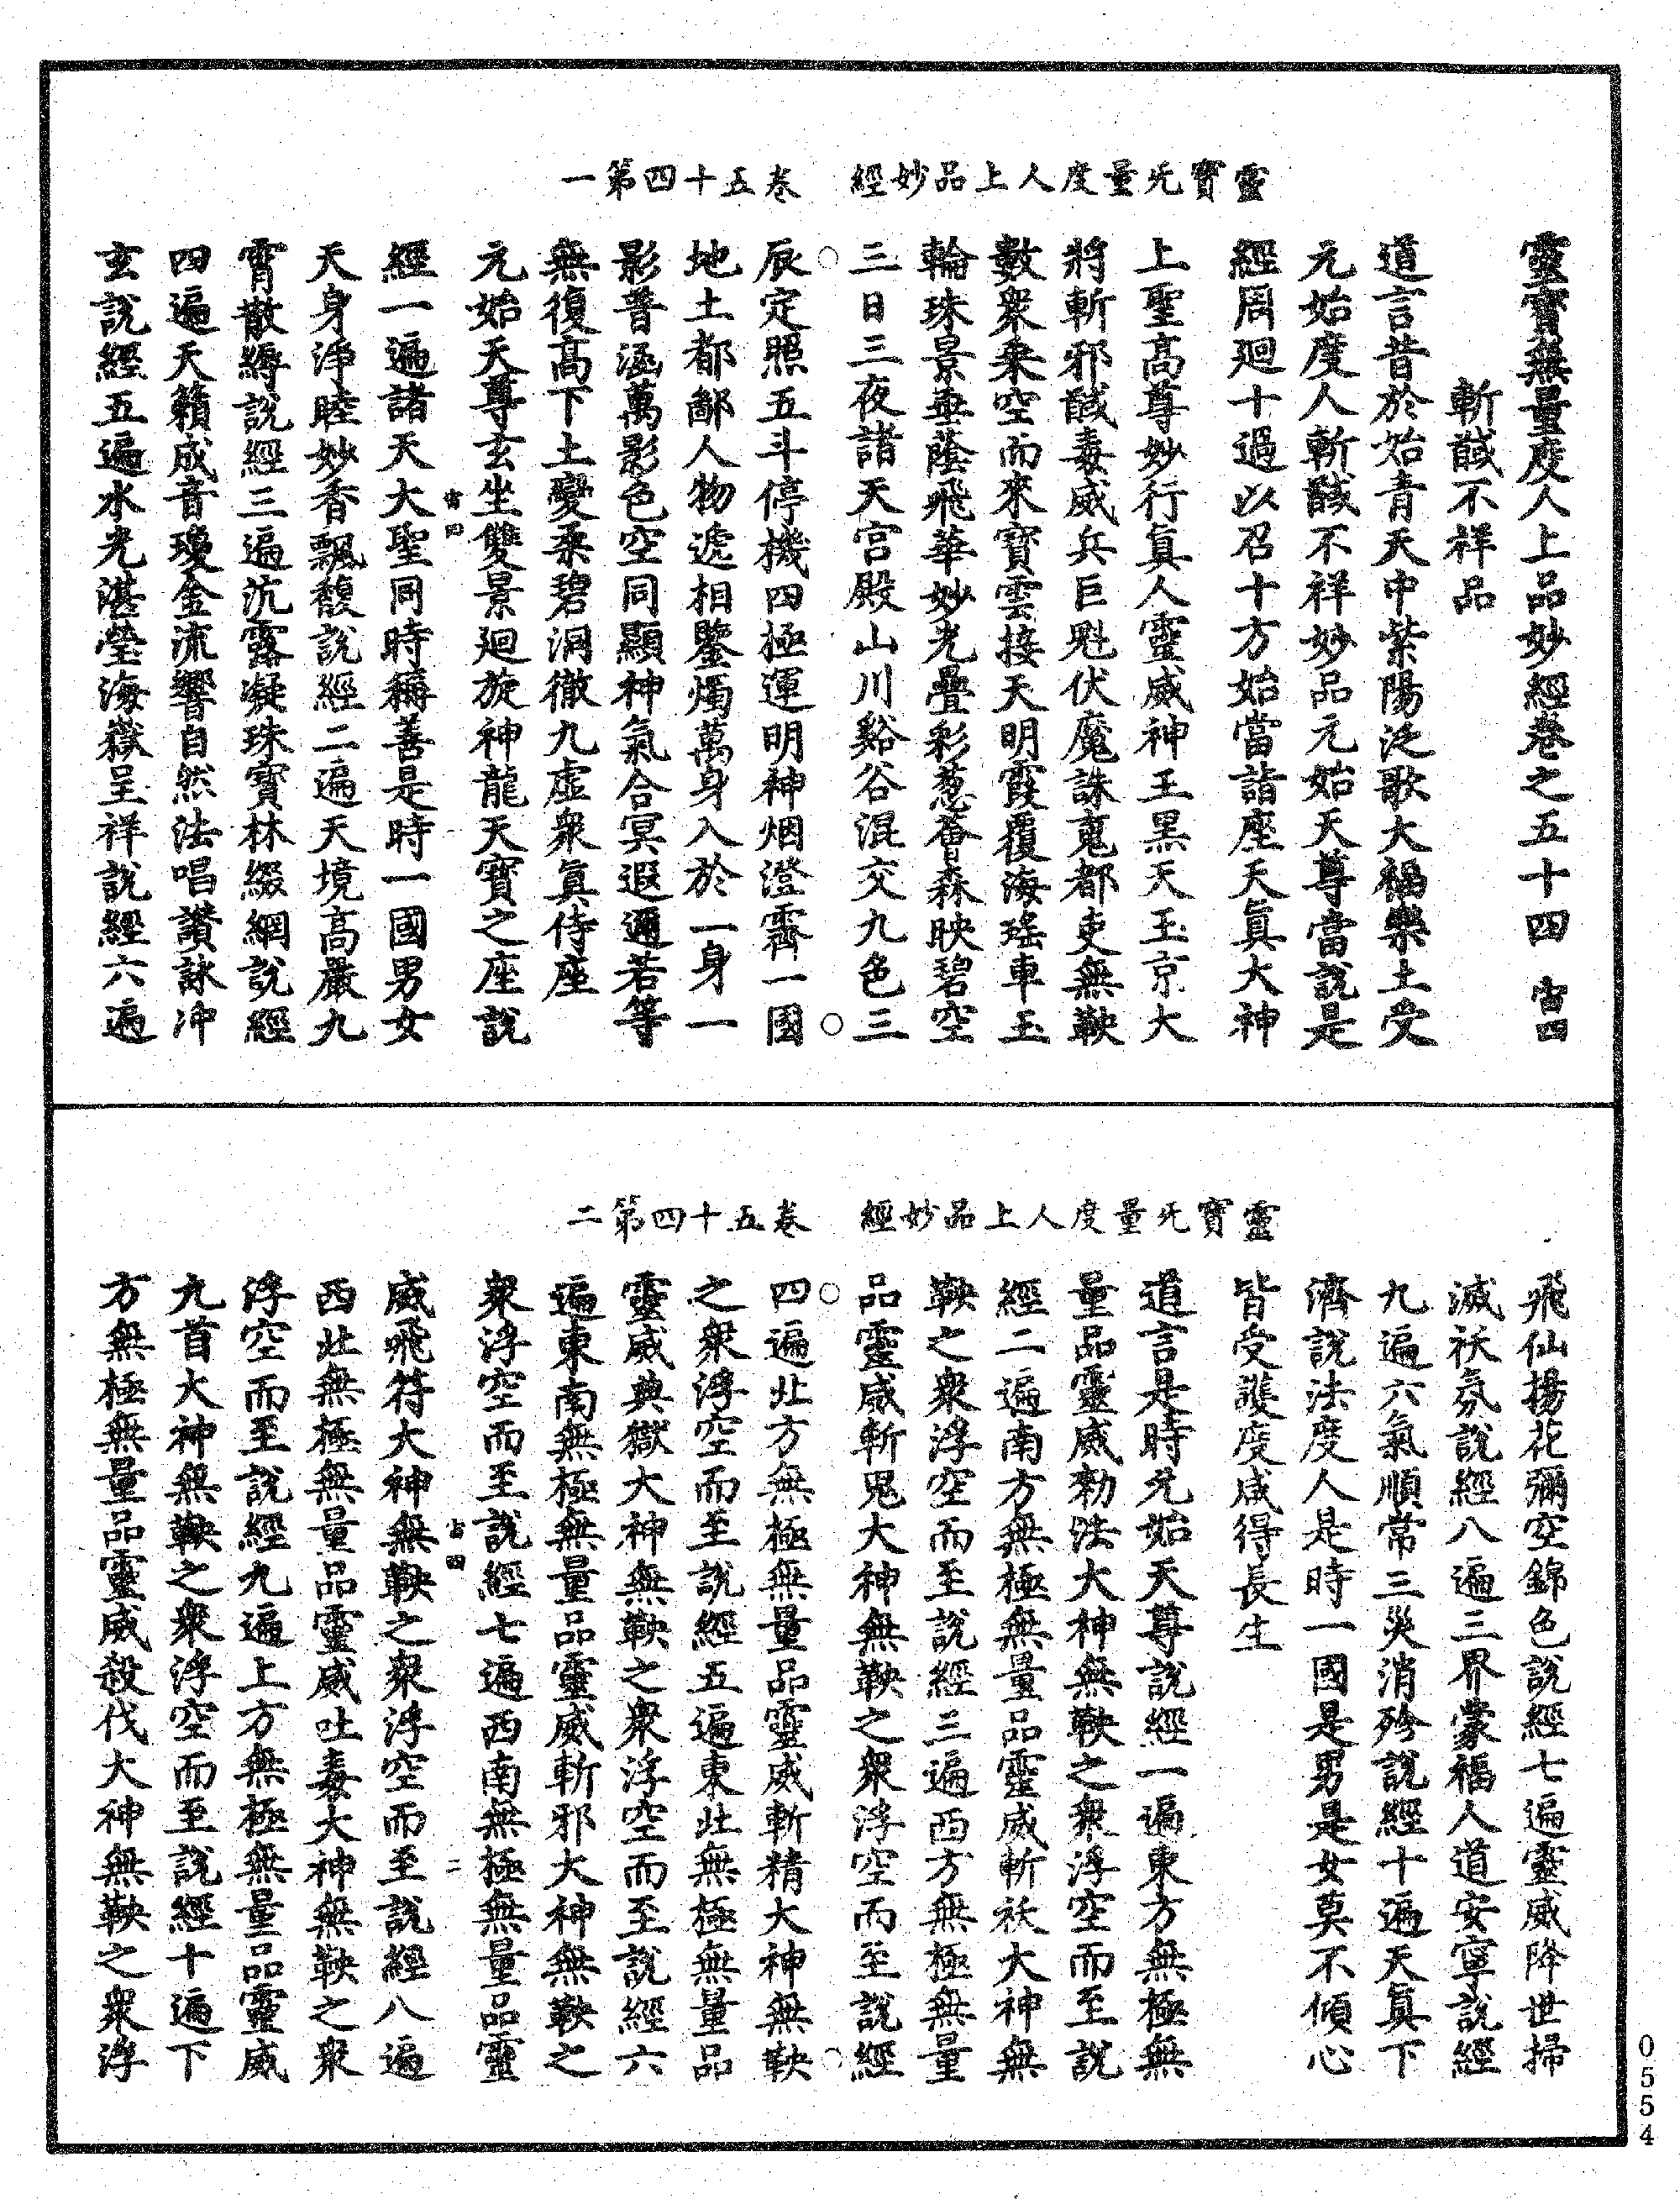 靈寶无量度人上品妙經　卷五十四第一
靈寶無量度人上品妙經卷之五十四　宙四
斬馘不祥品
道言昔於始青天中紫陽泛歌大福樂土受
元始度人斬馘不祥妙品元始天尊當說是
經周廻十過以召十方始當詣座天真大神
上聖高尊妙行真人靈威神王黑天玉京大
將斬邪馘毒威兵巨鬽伏魔誅鬼都吏無鞅
數衆乘空而來寶雲接天明霞覆海瑤車玉
輪珠景垂蔭飛華妙光疊彩葱薈森映碧空
三日三夜諸天宮殿山川谿谷混交九色三
辰定照五斗停機四極運明神烟澄霽一國
地土都鄙人物遞相鑒燭萬身入於一身一
影普涵萬影色空同顯神氣合冥遐邇若等
無復高下土變柔碧洞徹九虛衆真侍座
元始天尊玄坐雙景廻旋神龍天寶之座說
經一遍諸天大聖同時稱善是時一國男女
天身淨睦妙香飄馥說經二遍天境高嚴九
霄散縟說經三遍沆露凝珠寶林綴網說經
四遍天籟成音瓊金流響自然法唱讚詠冲
玄說經五遍水光湛瑩海嶽呈祥說經六遍
宙四
靈寶无量度人上品妙經　卷五十四第二
飛仙揚花彌空錦色說經七遍靈威降世掃
滅祅氛說經八遍三界蒙福人道安寧說經
九遍六氣順常三災消殄說經十遍天真下
濟說法度人是時一國是男是女莫不傾心
皆受護度咸得長生
道言是時元始天尊說經一遍東方無極無
量品靈威勑法大神無鞅之衆浮空而至說
經二遍南方無極無量品靈威斬祅大神無
鞅之衆浮空而至說經三遍西方無極無量
品靈威斬鬼大神無鞅之衆浮空而至說經
四遍北方無極無量品靈威斬精大神無鞅
之衆浮空而至說經五遍東北無極無量品
靈威典獄大神無鞅之衆浮空而至說經六
遍東南無極無量品靈威斬邪大神無鞅之
衆浮空而至說經七遍西南無極無量品靈
威飛符大神無鞅之衆浮空而至說經八遍
西北無極無量品靈威吐毒大神無鞅之衆
浮空而至說經九遍上方無極無量品靈威
九首大神無鞅之衆浮空而至說經十遍下
方無極無量品靈威殺伐大神無鞅之衆浮
宙四　二
0554